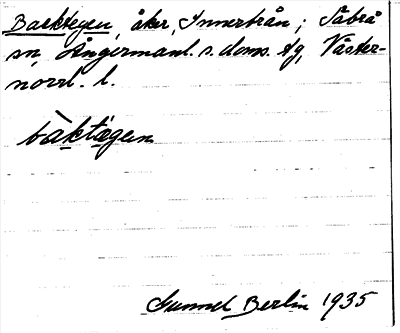 Backtegen, åker, Innerbrån; Säbrå
sn, Ångermanl. s. doms. tg, Väster-
norrl. l.
bàktegen
Gunnel Berlin 1935